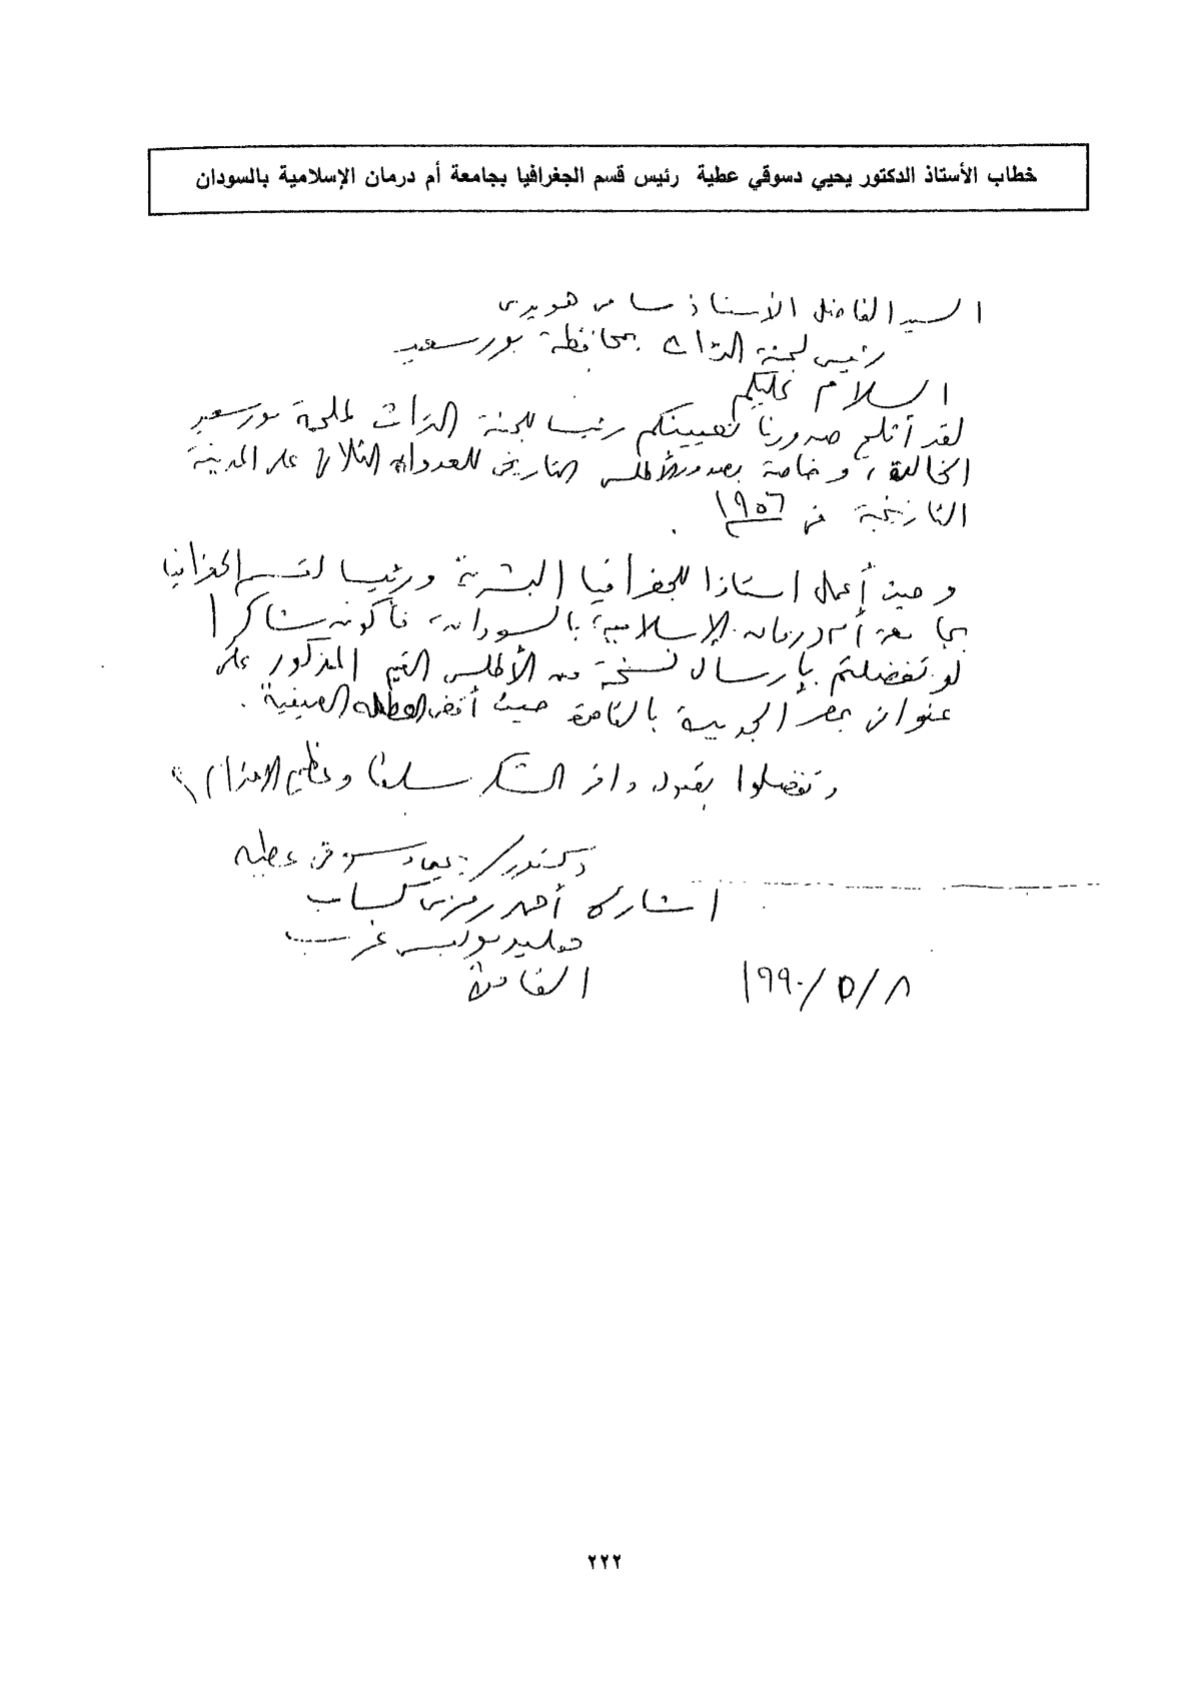 خطاب الأستاذ الدكتور يحيي دسوقي عطية رئيس قسم الجغرافيا بجامعة أم درمان الإسلامية بالسودان
السيد الفاضل الأستاذ سامى هويدى
رئيس لجنة التراث بمحافظة بورسعيد
السلام عليكم
لقد أثلج صدورنا تعيينكم رئيسا للجنة التراث لملحمة بورسعيد
الخالدة، وخاصة بصدور الأطلس التاريخى للعدوان الثلاثى على المدينة
التاريخية فى ١٩٥٦
وحيث أعمل استاذا للجغرافيا البشرية ورئيسا لقسم الجغرافيا
بجامعة أم درمان الإسلامية بالسودان، فأكون شاكرا
لو تفضلتم بإرسال نسخة من الأطلس القيم المذكور على
عنوانى بمصر الجديدة بالقاهرة حيث أقضى العطلة الصيفية.
وتفضلوا بقبول وافر الشكر سلفا وعظيم الاحترام
دكتور / يحيى دسوقى عطيه
١ شارع أحمد رمزى كساب
بوليس غرب
القاهرة
٨ / ٥ / ١٩٩٠
٢٢٢